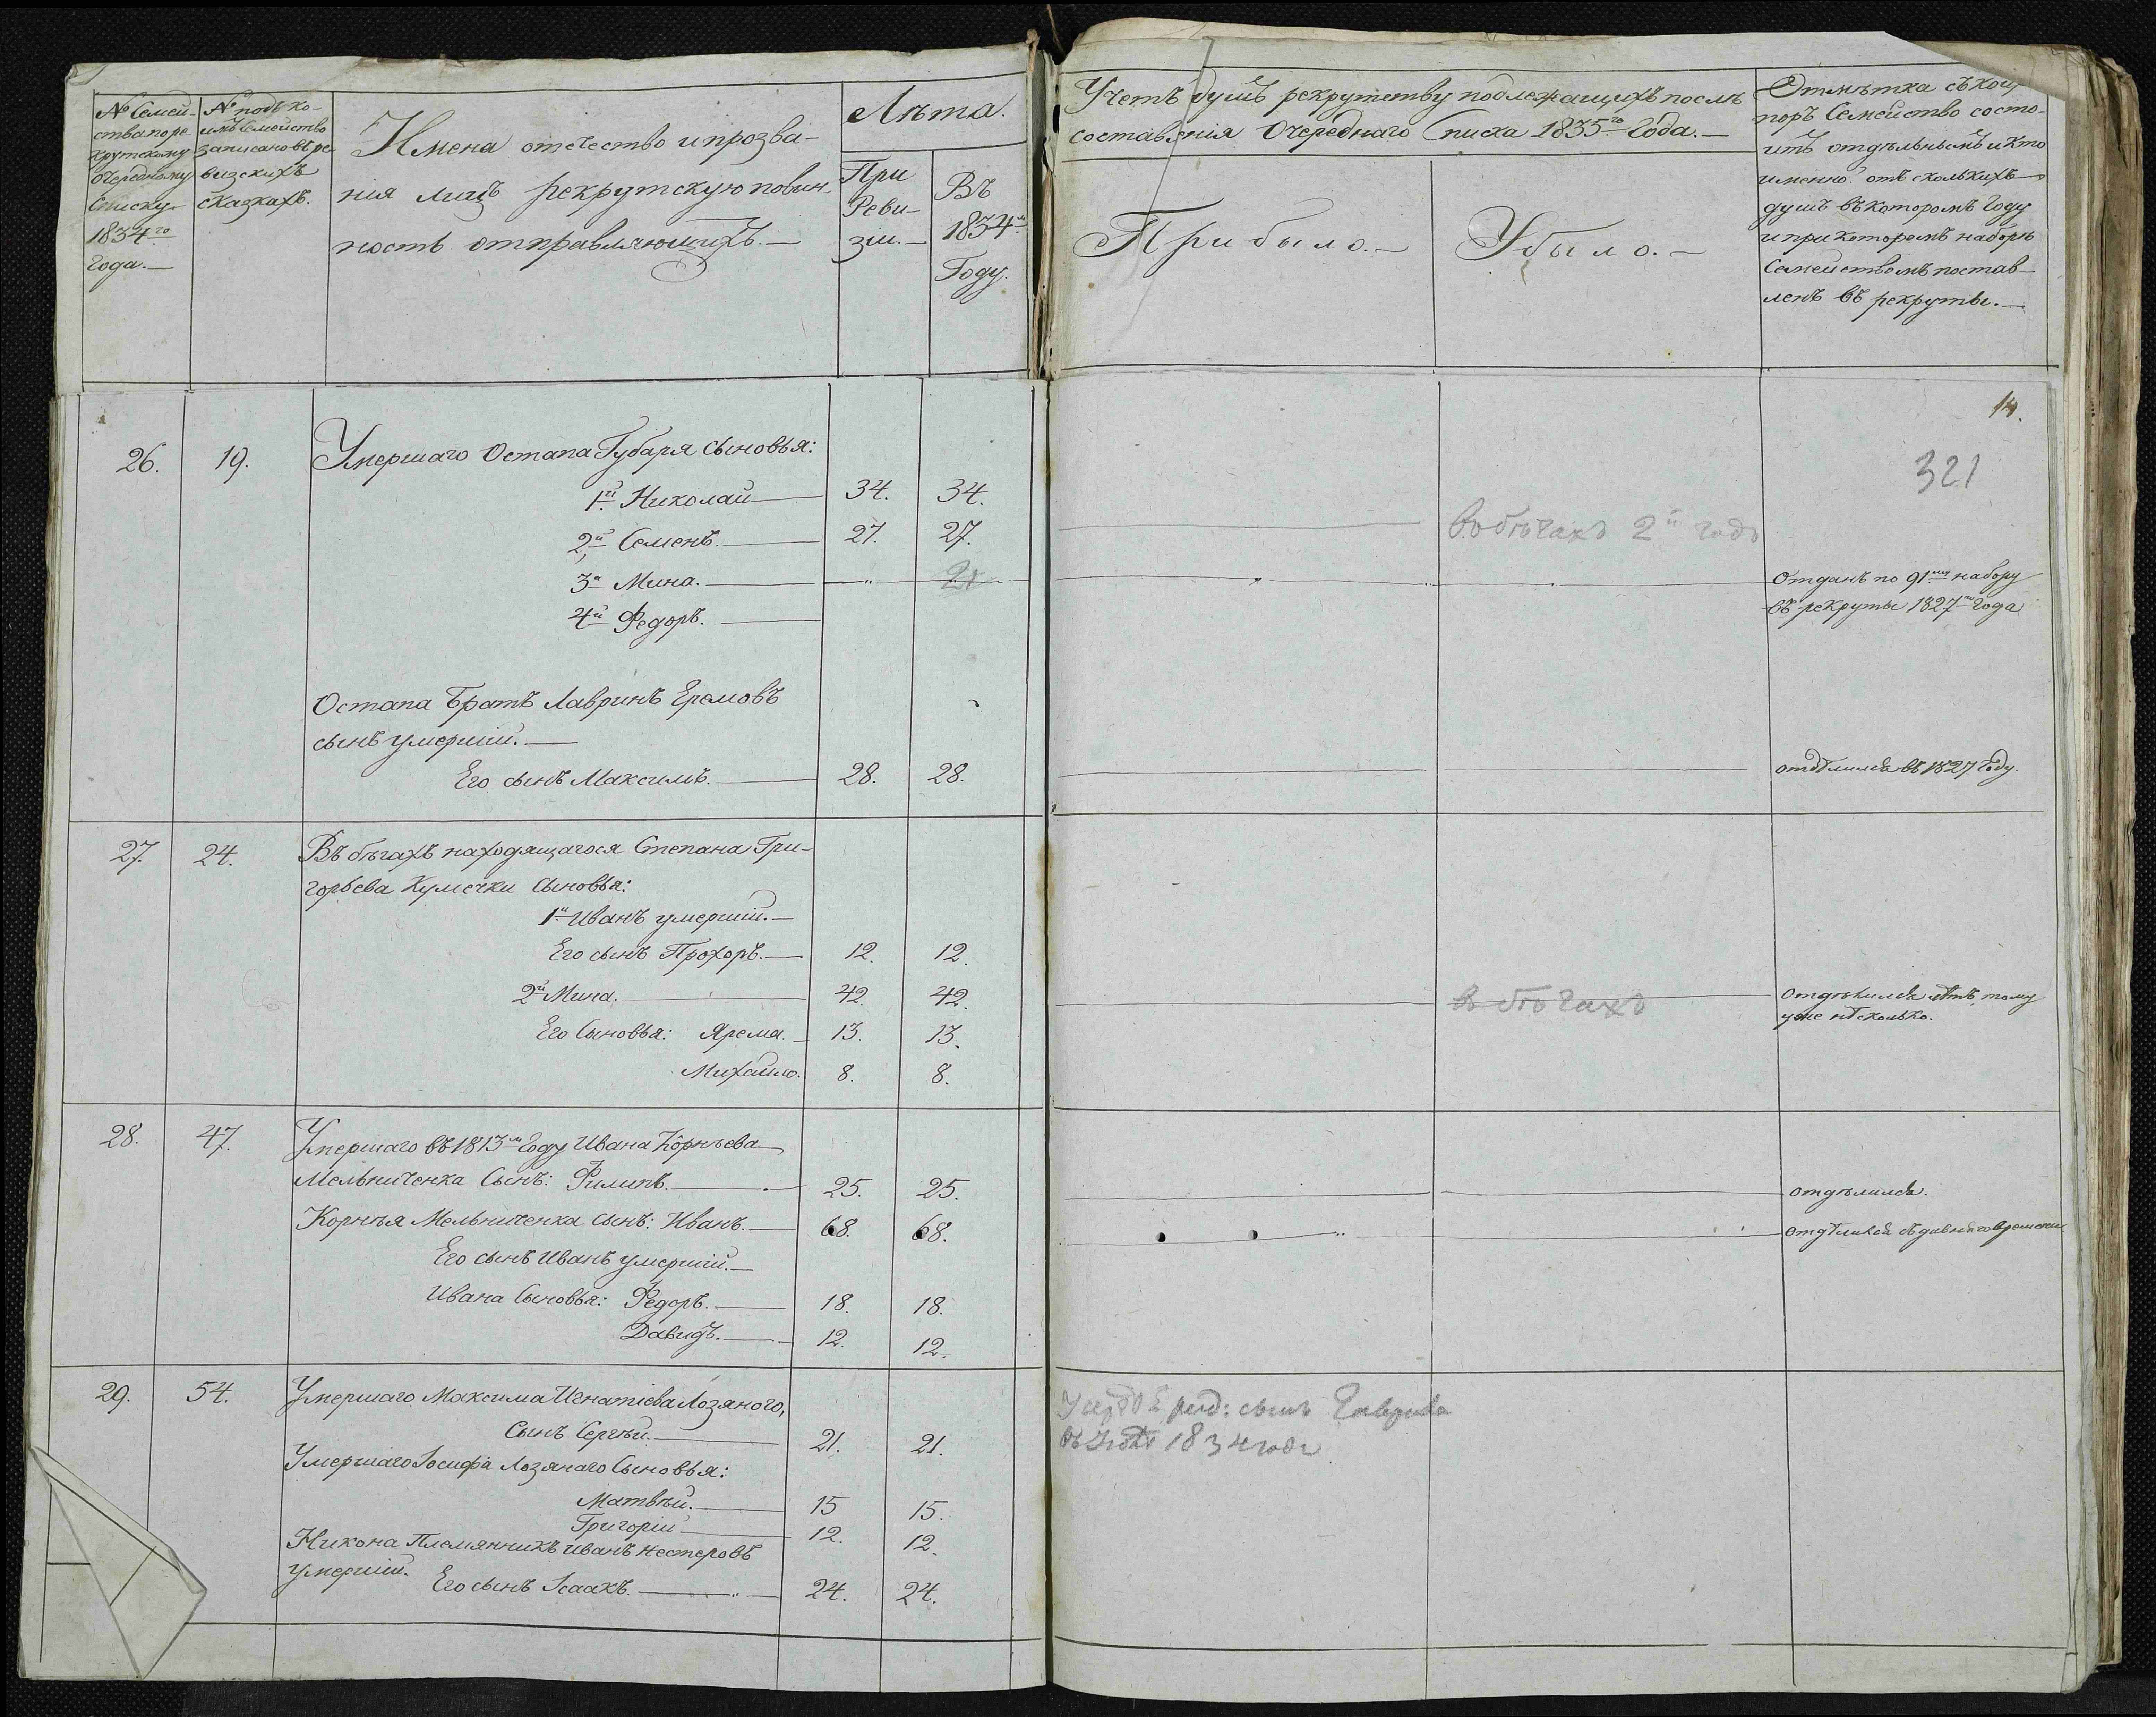 № Семей-
ства по ре
крутскому
очередному
Списку
1834го
года.
№ подъ ко-
имъ Семейство
записано въ ре
визскихъ
сказкахъ.
Имена отечество и прозва-
нія лицъ рекрутскую повин-
ность отправляющихъ.
Лѣта.
При
Реви-
зіи.
Въ
1834м
Году.
Учетъ душъ рекрутству подлежащихъ послѣ
составленія Очереднаго Списка 1835го Года.
Прибыло.
Убыло.
Отмѣтка съ кои
поръ Семейство состо-
итъ отдѣльнымъ и кто
именно отъ сколькихъ
душъ въ которомъ Году
и при которомъ наборѣ
Семействомъ постав-
ленъ въ рекруты.
14.
321
26. 19. Умершаго Остапа Губаря сыновья:
1й Николай 34. 34.
2й Семенъ. 27. 27. Въ бѣгахъ 2й годъ
3й Мина. 21 Отданъ по 91му набору
въ рекруты 1827го года
4й Федоръ.
Остапа Братъ Лавринъ Еремовъ
сынъ умершій.
Его сынъ Максимъ. 28. 28. отдѣлился въ 1827 году.
27. 24. Въ бѣгахъ находящагося Степана Гри-
горьева Кумечки Сыновья:
1й Иванъ умершій.
Его сынъ Прохоръ. 12. 12.
2й Мина. 42. 42. въ бѣгахъ Отдѣлился лѣтъ тому
уже нѣсколько.
Его Сыновья: Ярема. 13. 13.
Михайло. 8. 8.
28. 47. Умершаго въ 1813м Году Ивана Корнѣева
Мельниченка Сынъ: Филипъ. 25. 25. отдѣлился.
Корнѣя Мельниченка сынъ: Иванъ. 68. 68. отдѣлился съ давняго времени
Его сынъ Иванъ умершій.
Ивана Сыновья: Федоръ. 18. 18.
Давидъ. 12. 12.
29. 54. Умершаго Максима Игнатіева Лозяного,
Сынъ Сергѣй. 21. 21.
сынъ
1834 года
Умершаго Іосифа Лозянаго Сыновья:
Матвѣй. 15 15.
Григорій 12. 12.
Никона Племянникъ Иванъ Нестеровъ
умершій.
Его сынъ Ісаакъ. 24. 24.